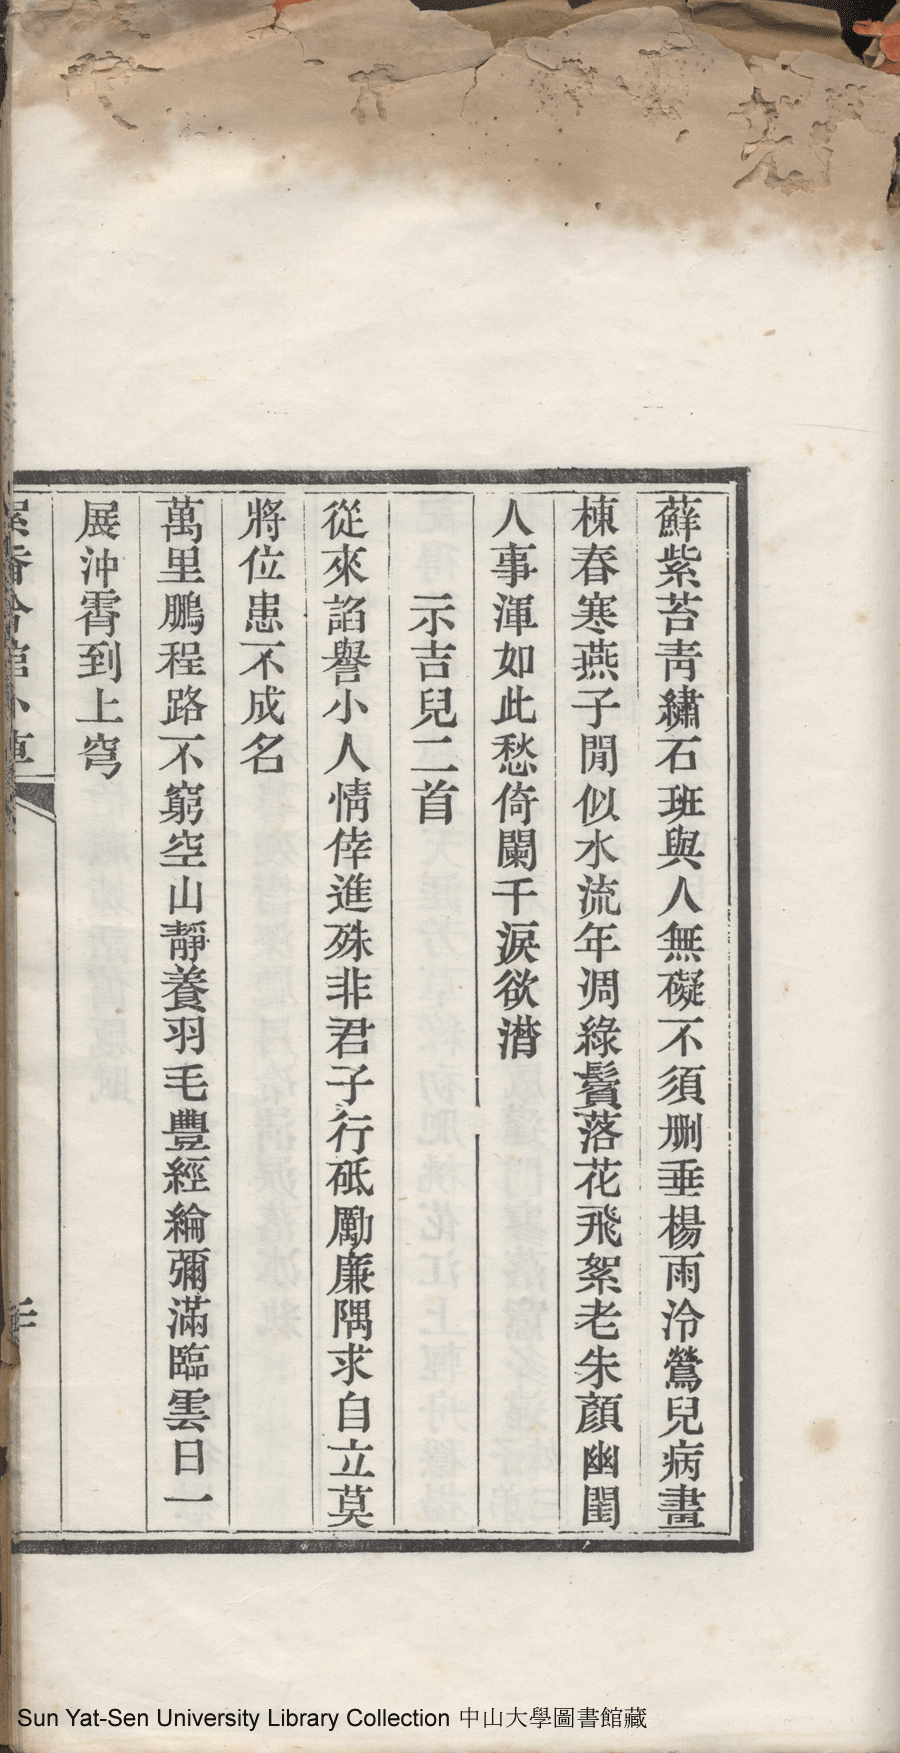 蘚紫苔靑繡石班與人無礙不須刪垂楊雨泠鶯兒病畫
棟春寒燕子閒似水流年凋綠鬢落花飛絮老朱顏幽閨
人事渾如此愁倚闌干淚欲潸
示吉兒二首
從來諂譽小人情倖進殊非君子行砥勵廉隅求自立莫
將位患不成名
萬里鵬程路不窮空山靜養羽毛豐經綸彌滿臨雲日一
展沖霄到上穹
Sun Yat-Sen University Library Collection 中山大學圖書館藏